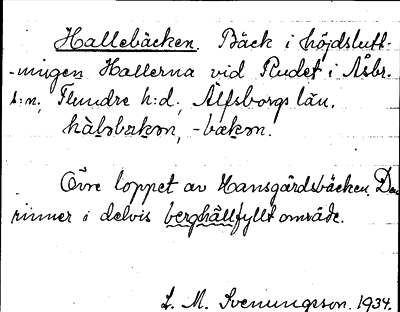 Hallebäcken. Bäck i höjdslutt-
-ningen Hallerna vid Rudet i Åsbr.
s:n, Flundre h:d, Älfsborgs län.
hàləbækən, -bækən.
Övre loppet av Hansgårdsbäcken. Den
rinner i delvis berghällfyllt område.
L. M. Svenungsson. 1934.